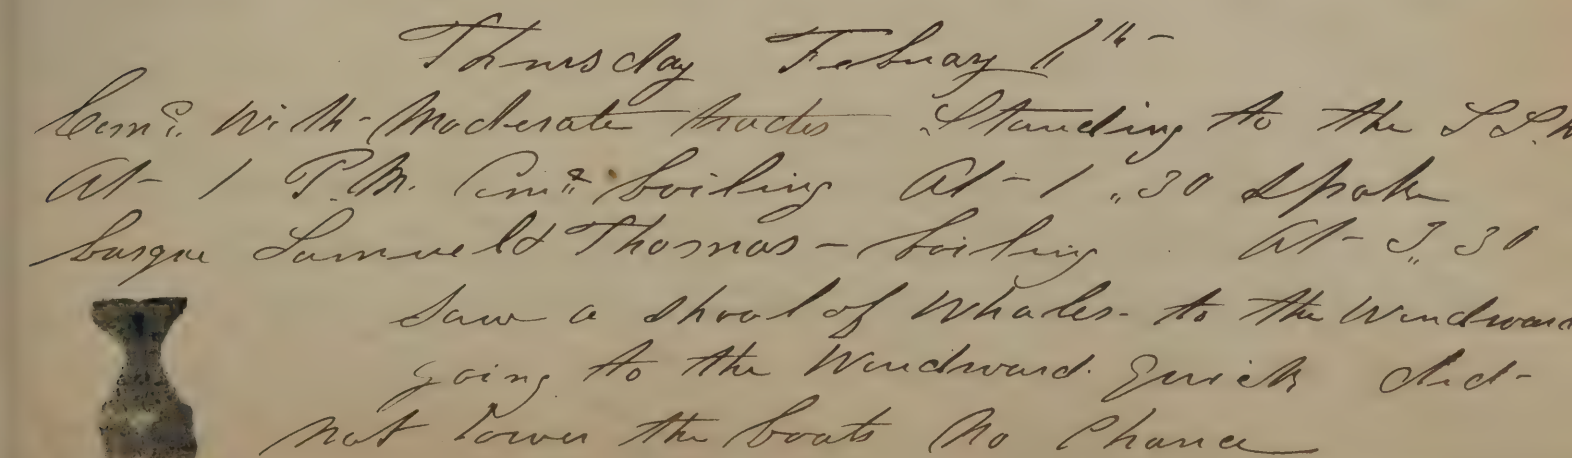 Thursday Febuary 6th
Comc. With Moderate trades Standing to the S S.W
At 1 P.M. Comc boiling At 1,,30 Spoke
barque Samueld Thomas - boiling At 3,,30
Saw a Shoal of Whales - to the Windward
going to the Windward. quick did
not lower the boats No Chance